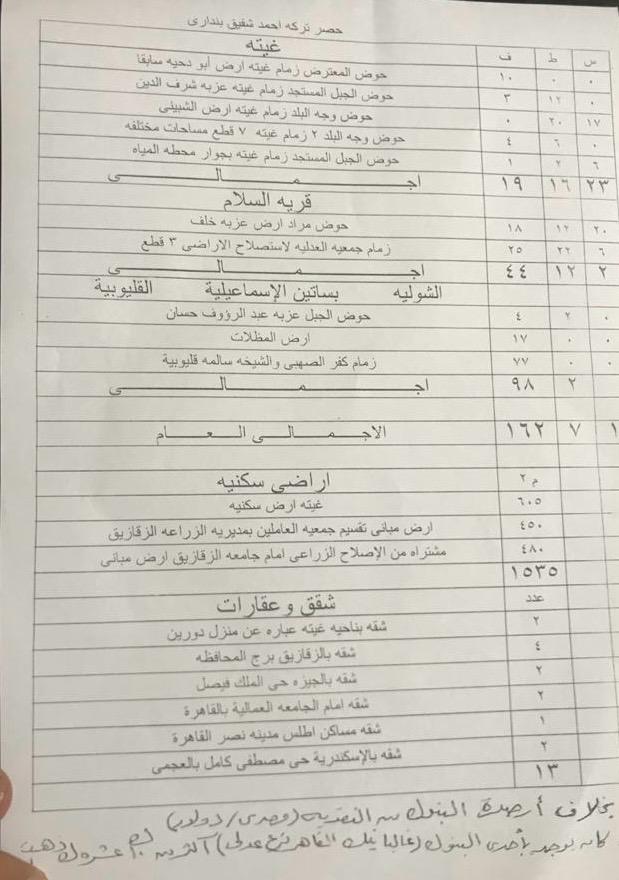 حصر تركه احمد شفيق بندارى
غيته ف ط س
حوض المعترض زمام غيته ارض أبو دحيه سابقا ١٠ ٠ ٠
حوض الجبل المستجد زمام غيته عزبه شرف الدين ٣ ١٢ ٠
حوض وجه البلد زمام غيته ارض الشبينى ٠ ٢٠ ١٧
حوض وجه البلد ٢ زمام غيته ٧ قطع مساحات مختلفه ٤ ٦ ٠
حوض الجبل المستجد زمام غيته بجوار محطه المياه ١ ٢ ٦
اجـمـالـى ١٩ ١٦ ٢٣
قريه السلام
حوض مراد ارض عزبه خلف ١٨ ١٢ ٢٠
زمام جمعيه العدليه لاستصلاح الاراضى ٣ قطع ٢٥ ٢٢ ٦
اجـمـالـى ٤٤ ١٢ ٢
الشوليه بساتين الإسماعيلية القليوبية
حوض الجبل عزبه عبد الرؤوف حسان ٤ ٢ ٠
ارض المظلات ١٧ ٠ ٠
زمام كفر الصهبى والشيخه سالمه قليوبية ٧٧ ٠ ٠
اجـمـالـى ٩٨ ٢
الاجـمـالـى الـعـام ١٦٢ ٧ ١
اراضى سكنيه م ٢
غيته ارض سكنيه ٦٠٥
ارض مبانى تقسيم جمعيه العاملين بمديريه الزراعه الزقازيق ٤٥٠
مشتراه من الإصلاح الزراعى امام جامعه الزقازيق ارض مبانى ٤٨٠
١٥٣٥
شقق و عقارات عدد
شقه بناحيه غيته عباره عن منزل دورين ٢
شقه بالزقازيق برج المحافظه ٤
شقه بالجيزه حى الملك فيصل ٢
شقه امام الجامعه العمالية بالقاهرة ٢
شقه مساكن اطلس مدينه نصر القاهرة ١
شقه بالإسكندرية حى مصطفى كامل بالعجمى ٢
١٣
بخلاف أرصدة البنوك من النقديه (مصرى/دولار)
كان يوجد بأحدى البنوك (غالبا بنك القاهر فرع عدلى) أكثر من عشرون ذهب